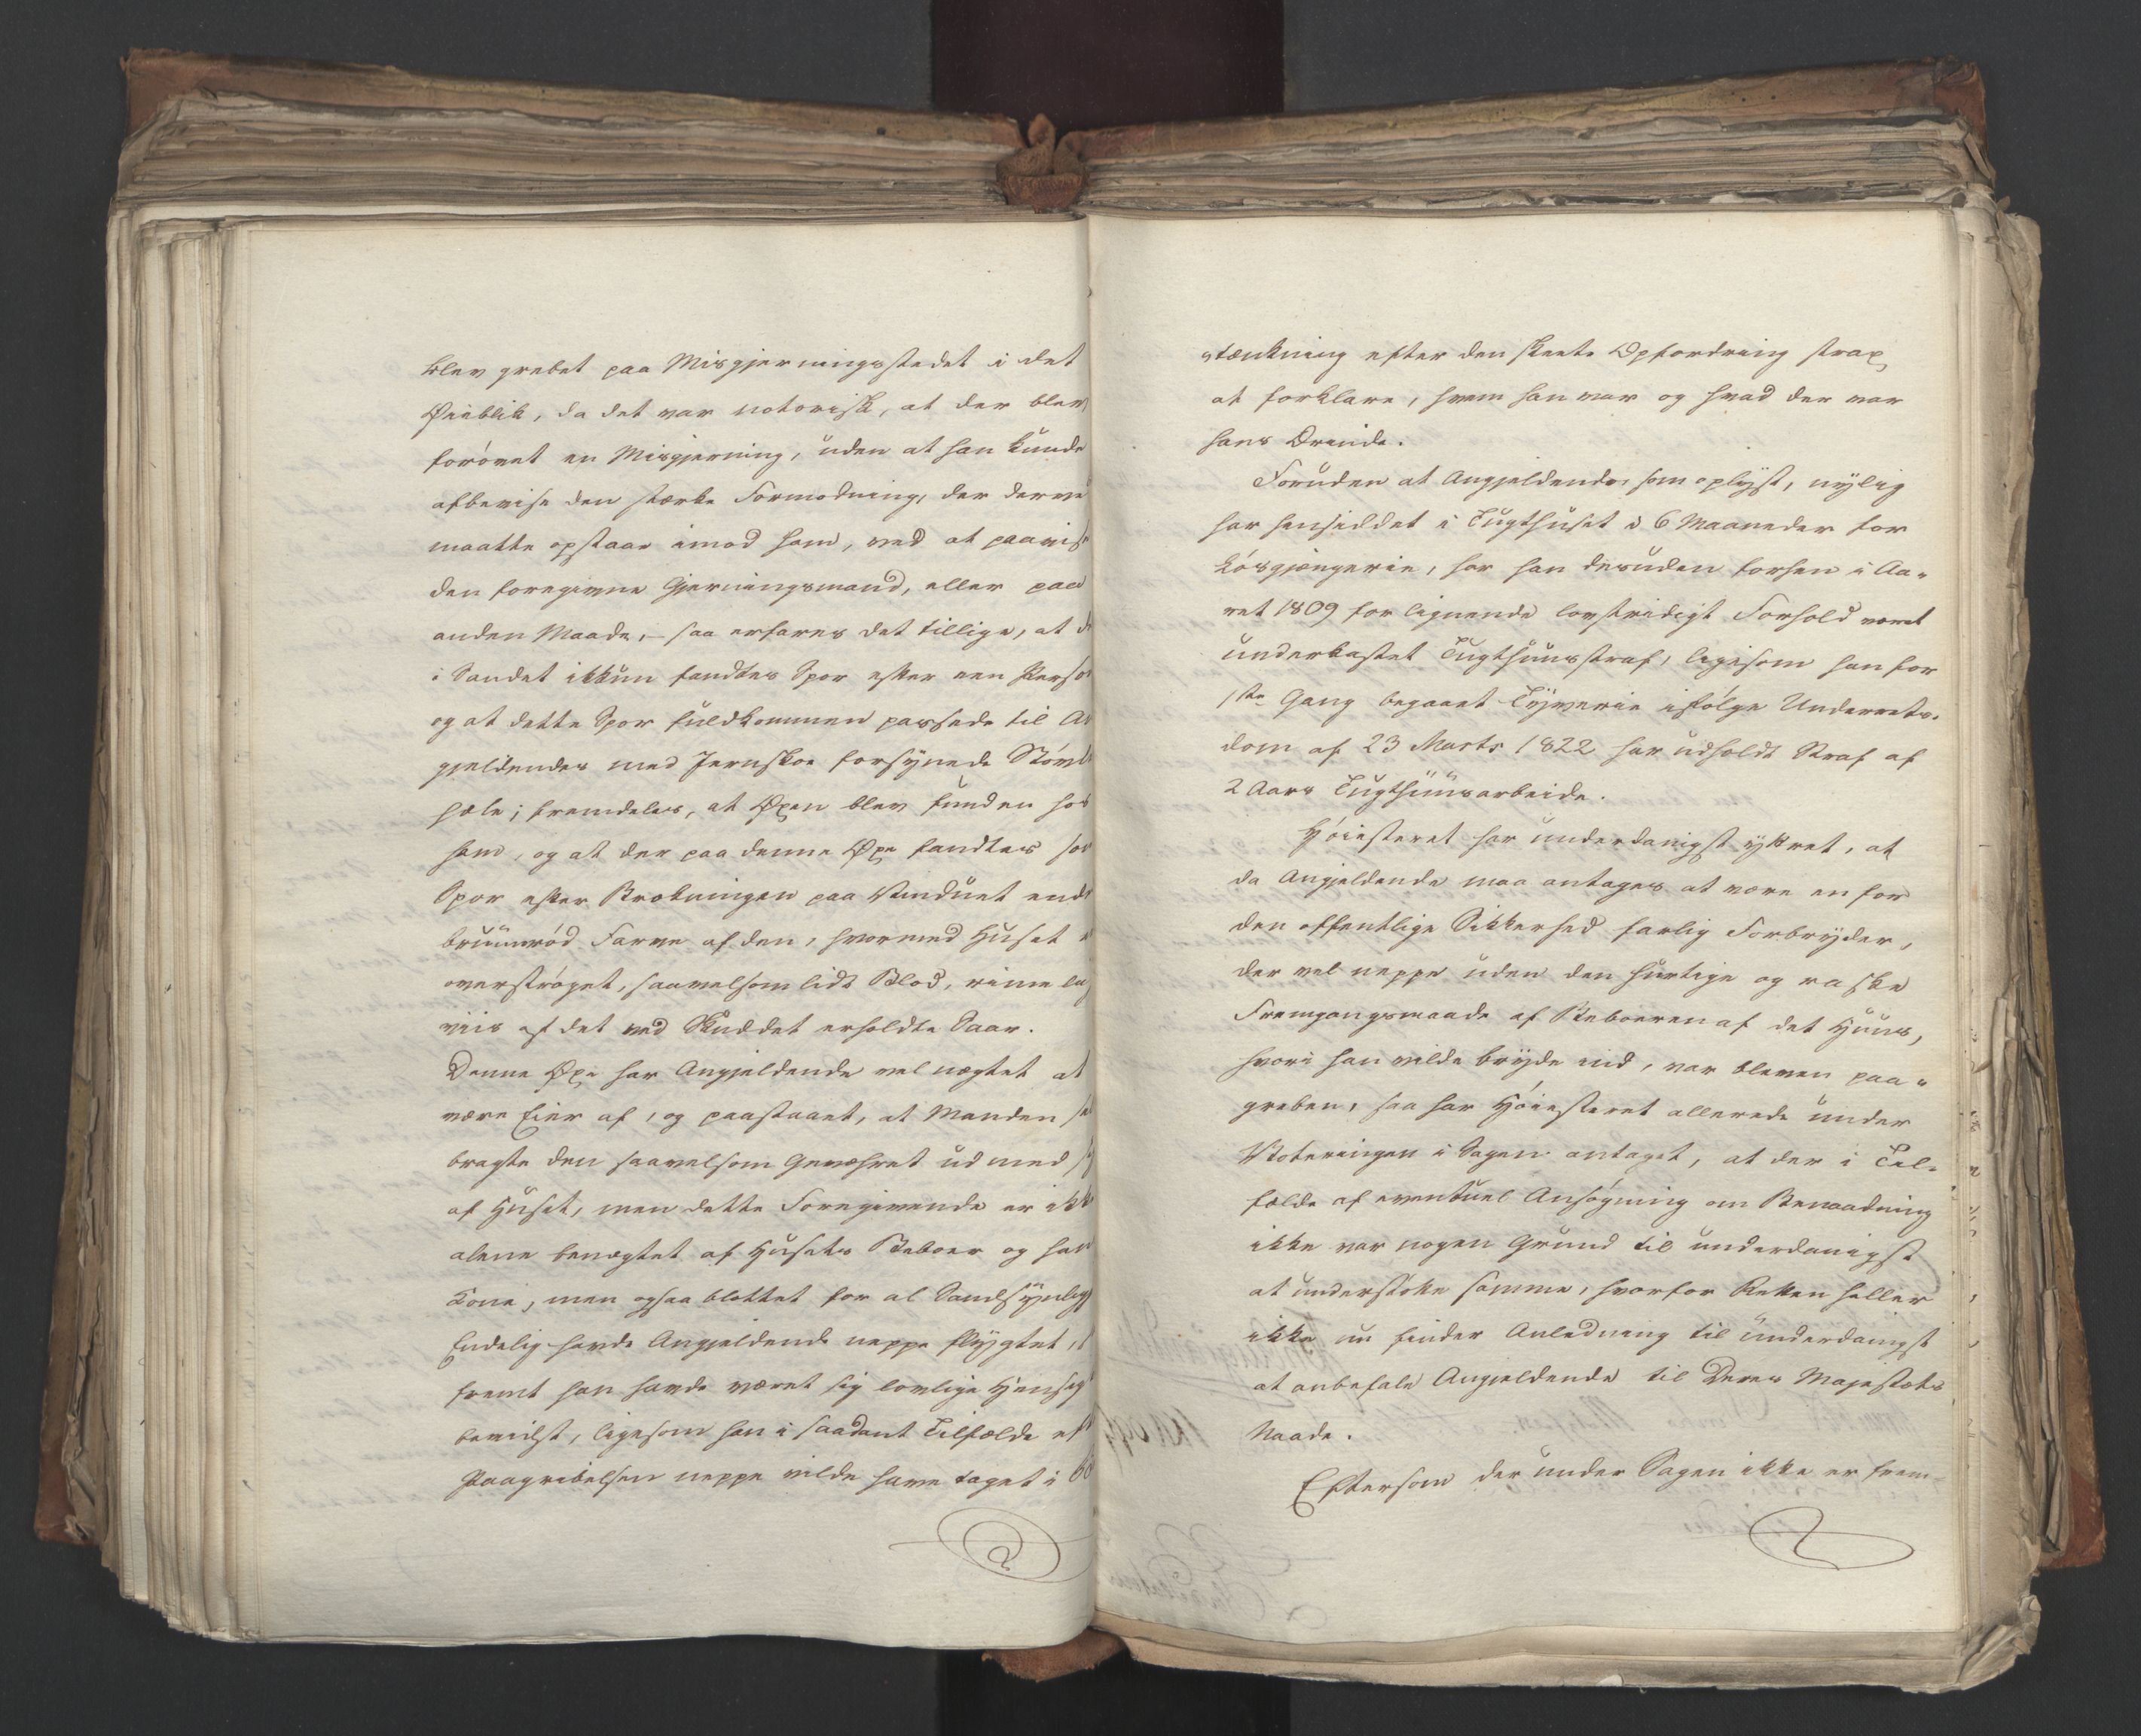 blev grebet paa Misgjerningsstedet i det
Øieblik, da det var notorisk, at der blev
forövet en Misgjerning, uden at han kunde
afbevise den stærke Formodning, der derve
maatte opstaae imod ham, ved at paavise
den foregivne Gjerningsmand, eller paa
anden Maade, – saa erfares det tillige, at d
i Sandet ikkun fandtes Spor efter een Perso
og at dette Spor fuldkommen passede til An
gjeldendes med Jernskoe forsynede Stövle
hæle; fremdeles, at Øxen blev funden hos
ham, og at der paa denne Øxe fandtes saa
Spor efter Brækningen paa Vinduet ende
bruunröd Farve af den, hvormed Huset
overströget, saavelsom lidt Blod, rimelig
viis af det ved Skuddet erholdte Saar.
Denne Øxe har Angjeldende vel nægtet at
være Eier af, og paastaaet, at Manden
bragte den saavelsom Geværet ud med
af Huset, men dette Foregivende er ikke
alene benægtet af Husets Beboer og hans
Kone, men ogsaa blottet for al Sandsynlig
Endelig havde Angjeldende neppe flygtet,
fremt han havde været sig lovlige Hensig
bevidst, ligesom han i saadant Tilfælde ef
Paagribelsen neppe vilde have taget i Be
tænkning efter den skeete Opfordring strax
at forklare, hvem han var og hvad der var
hans Ærinde.
Foruden at Angjeldende, som oplyst, nylig
har hensiddet i Tugthuset i 6 Maaneder for
Lösgjængerie, har han desuden forhen i Aa„
ret 1809 for lignende lovstridigt Forhold været
underkastet Tugthuusstraf, ligesom han for
1ste Gang begaaet Tyverie ifölge Underrets„
dom af 23 Marts 1822 har udholdt Straf af
2 Aars Tugthuusarbeide.
Höiesteret har underdanigst yttret, at
da Angjeldende maa antages at være en for
den offentlige Sikkerhed farlig Forbryder,
der vel neppe uden den hurtige og raske
Fremgangsmaade af Beboeren af det Huus,
hvori han vilde bryde ind, var bleven paa„
greben, saa har Höiesteret allerede under
Voteringen i Sagen antaget, at der i Til„
fælde af eventuel Ansögning om Benaadning
ikke var nogen Grund til underdanigst
at understötte samme, hvorfor Retten heller
ikke nu finder Anledning til underdanigst
at anbefale Angjeldende til Deres Majestæts
Naade.
Eftersom der under Sagen ikke er frem„